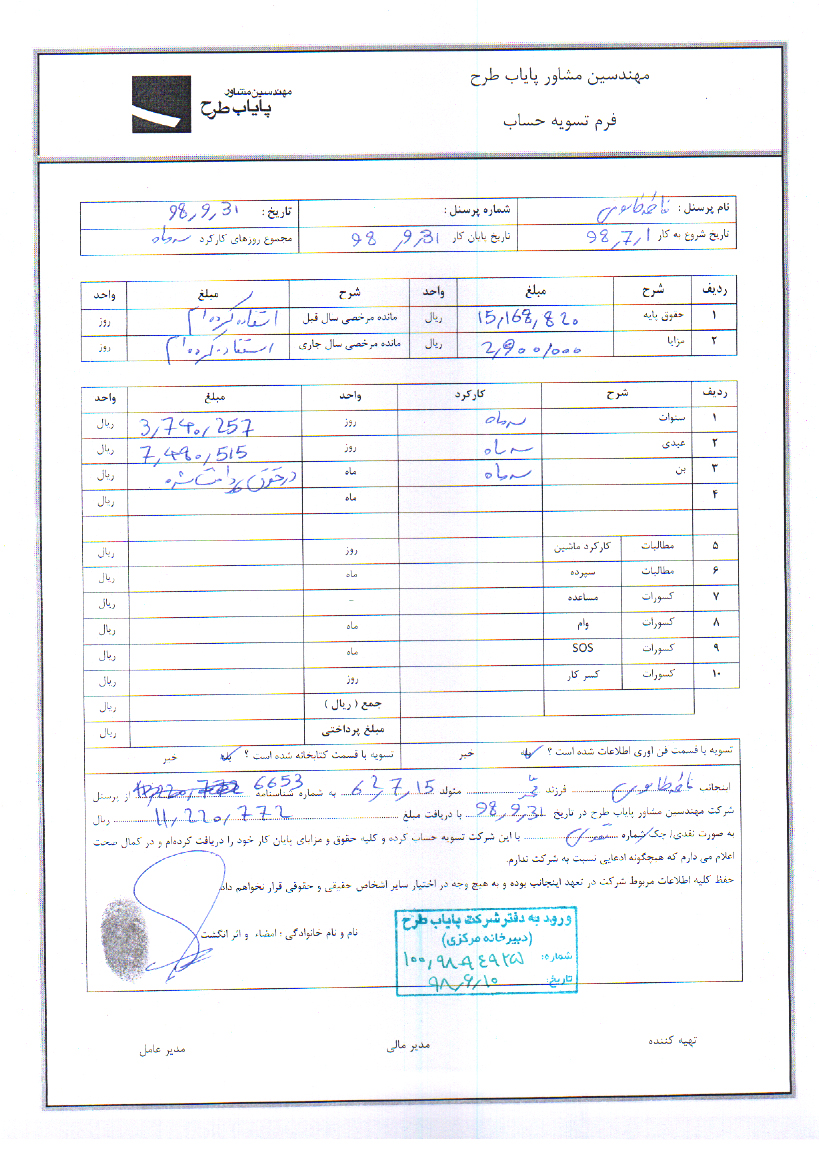 مهندسین مشاور پایاب طرح
مهندسین مشاور
پایاب طرح
فرم تسویه حساب
نام پرسنل : شماره پرسنل : تاریخ : 98,9,31
تاریخ شروع به کار 98,7,1 تاریخ پایان کار 98,9,31 مجموع روزهای کارکرد سه ماه
ردیف شرح مبلغ واحد شرح مبلغ واحد
۱ حقوق پایه 15,168,820 ریال مانده مرخصی سال قبل استفاده کرده ام روز
۲ مزایا ریال مانده مرخصی سال جاری استفاده کرده ام روز
ردیف شرح کارکرد واحد مبلغ واحد
۱ سنوات سه ماه روز 3,740,257 ریال
۲ عیدی سه ماه روز 7,480,515 ریال
۳ بن سه ماه ماه در حقوق پرداخت شده ریال
۴ ماه ریال
۵ مطالبات کارکرد ماشین روز ریال
۶ مطالبات سپرده ماه ریال
۷ کسورات مساعده - ریال
۸ کسورات وام ماه ریال
۹ کسورات SOS ماه ریال
۱۰ کسورات کسر کار روز ریال
جمع ( ریال ) ریال
مبلغ پرداختی ریال
تسویه با قسمت فن آوری اطلاعات شده است ؟ بله خیر تسویه با قسمت کتابخانه شده است ؟ بله خیر
اینجانب فرزند متولد 63,7,15 به شماره شناسنامه 6653 از پرسنل
شرکت مهندسین مشاور پایاب طرح در تاریخ 98,9,31 با دریافت مبلغ 11,220,772 ریال
به صورت نقدی/ چک شماره با این شرکت تسویه حساب کرده و کلیه حقوق و مزایای پایان کار خود را دریافت کرده‌ام و در کمال صحت
اعلام می دارم که هیچگونه ادعایی نسبت به شرکت ندارم.
حفظ کلیه اطلاعات مربوط شرکت در تعهد اینجانب بوده و به هیچ وجه در اختیار سایر اشخاص حقیقی و حقوقی قرار نخواهم داد.
نام و نام خانوادگی ; امضاء و اثر انگشت
ورود به دفتر شرکت پایاب طرح
(دبیرخانه مرکزی)
شماره:
تاریخ:
تهیه کننده مدیر مالی مدیر عامل